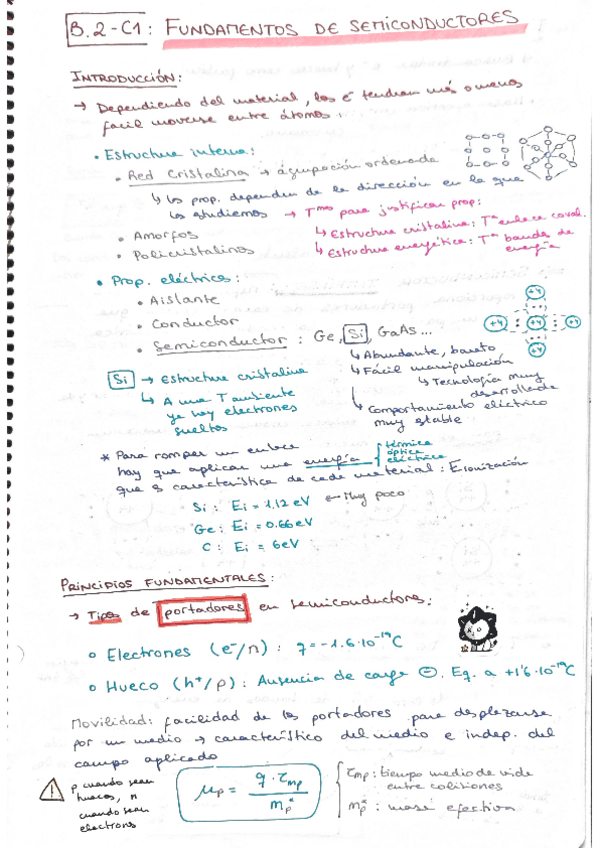 B.2-C1: FUNDAMENTOS DE SEMICONDUCTORES
INTRODUCCIÓN:
→ Dependiendo del material, los e⁻ tendrán más o menos
facil moverse entre átomos
• Estructura interna:
• Red Cristalina → agrupación ordenada
↳ las prop. dependen de la dirección en la que
las estudiemos → Tmas para justificar prop:
↳ Estructura cristalina: Tª enlace coval.
↳ Estructura energética: Tª bandas de
energía
• Amorfos
• Policristalinos
• Prop. eléctrica:
• Aislante
• Conductor
• Semiconductor: Ge, Si, GaAs...
↳ Abundante, barato
↳ Fácil manipulación
↳ Tecnología muy
desarrollada
↳ Comportamiento eléctrico
muy stable
+4
+4 +4 +4
+4
Si → Estructura cristalina
↳ A una T ambiente
ya hay electrones
sueltos
* Para romper un enlace
hay que aplicar una energía { térmica
óptica
eléctrica
que es característica de cada material: Eionización
Si: Ei = 1.12 eV ← Muy poco
Ge: Ei = 0.66 eV
C: Ei = 6eV
PRINCIPIOS FUNDAMENTALES:
→ Tipos de portadores en semiconductores:
• Electrones (e⁻/n): q = -1.6·10⁻¹⁹C
• Hueco (h⁺/p): Ausencia de carga ⊖. Eq. a +1'6·10⁻¹⁹C
Movilidad: facilidad de los portadores para desplazarse
por un medio → característico del medio e indep. del
campo aplicado
⚠ p cuando sean
huecos, n
cuando sean
electrons
μp = q · τmp / mp*
τmp: tiempo medio de vida
entre colisiones
mp*: masa efectiva